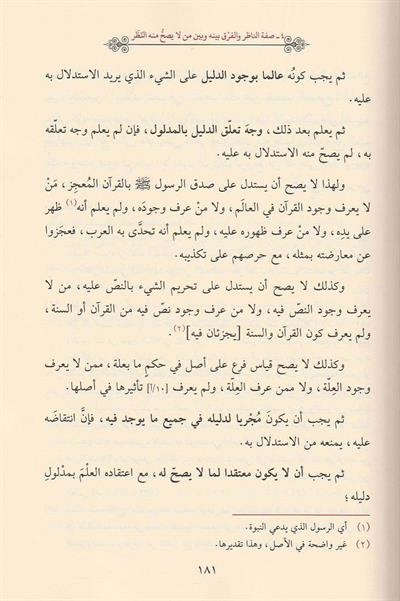 ٤ - صفة الناظر والفرْق بينه وبين من لا يصحُّ منه النّظَر
ثم يجب كونُه عالما بوجود الدليل على الشيء الذي يريد الاستدلال به
عليه.
ثم يعلم بعد ذلك، وجهَ تعلّق الدليل بالمدلول، فإن لم يعلم وجه تعلّقه
به، لم يصحّ منه الاستدلال به عليه.
ولهذا لا يصح أن يستدل على صدق الرسول ﷺ بالقرآن المُعجِز، مَنْ
لا يعرف وجود القرآن في العالَم، ولا منْ عرف وجودَه، ولم يعلم أنه(١) ظهر
على يدِه، ولا منْ عرف ظهوره عليه، ولم يعلم أنه تحدَّى به العرب، فعجَزوا
عن معارضته بمثله، مع حرصهم على تكذيبه.
وكذلك لا يصح أن يستدل على تحريم الشيء بالنصّ عليه، من لا
يعرف وجود النص فيه، ولا من عرف وجود نص فيه من القرآن أو السنة،
ولم يعرف كون القرآن والسنة [يجزئان فيه](٢).
وكذلك لا يصح قياس فرع على أصل في حكمٍ ما بعلة، ممن لا يعرف
وجود العِلّة، ولا ممن عرف العِلّة، ولم يعرف [١٠/أ] تأثيرها في أصلها.
ثم يجب أن يكونَ مُجْريا لدليله في جميع ما يوجد فيه، فإنَّ انتقاضَه
عليه، يمنعه من الاستدلال به.
ثم يجب أن لا يكون معتقدا لما لا يصحّ له، مع اعتقاده العلْمَ بمدْلولِ
دليله؛
(١) أي الرسول الذي يدعي النبوة.
(٢) غير واضحة في الأصل، وهذا تقديرها.
١٨١